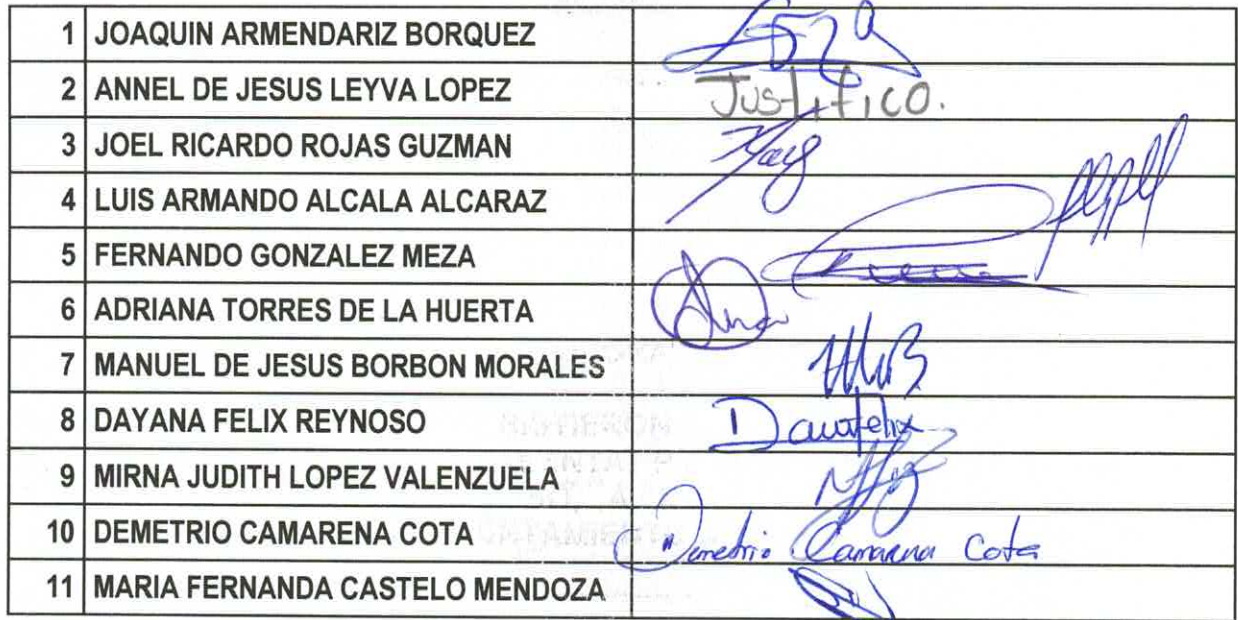 1 JOAQUIN ARMENDARIZ BORQUEZ
2 ANNEL DE JESUS LEYVA LOPEZ Justifico.
3 JOEL RICARDO ROJAS GUZMAN
4 LUIS ARMANDO ALCALA ALCARAZ
5 FERNANDO GONZALEZ MEZA
6 ADRIANA TORRES DE LA HUERTA
7 MANUEL DE JESUS BORBON MORALES
8 DAYANA FELIX REYNOSO
9 MIRNA JUDITH LOPEZ VALENZUELA
10 DEMETRIO CAMARENA COTA Demetrio Camarena Cota
11 MARIA FERNANDA CASTELO MENDOZA